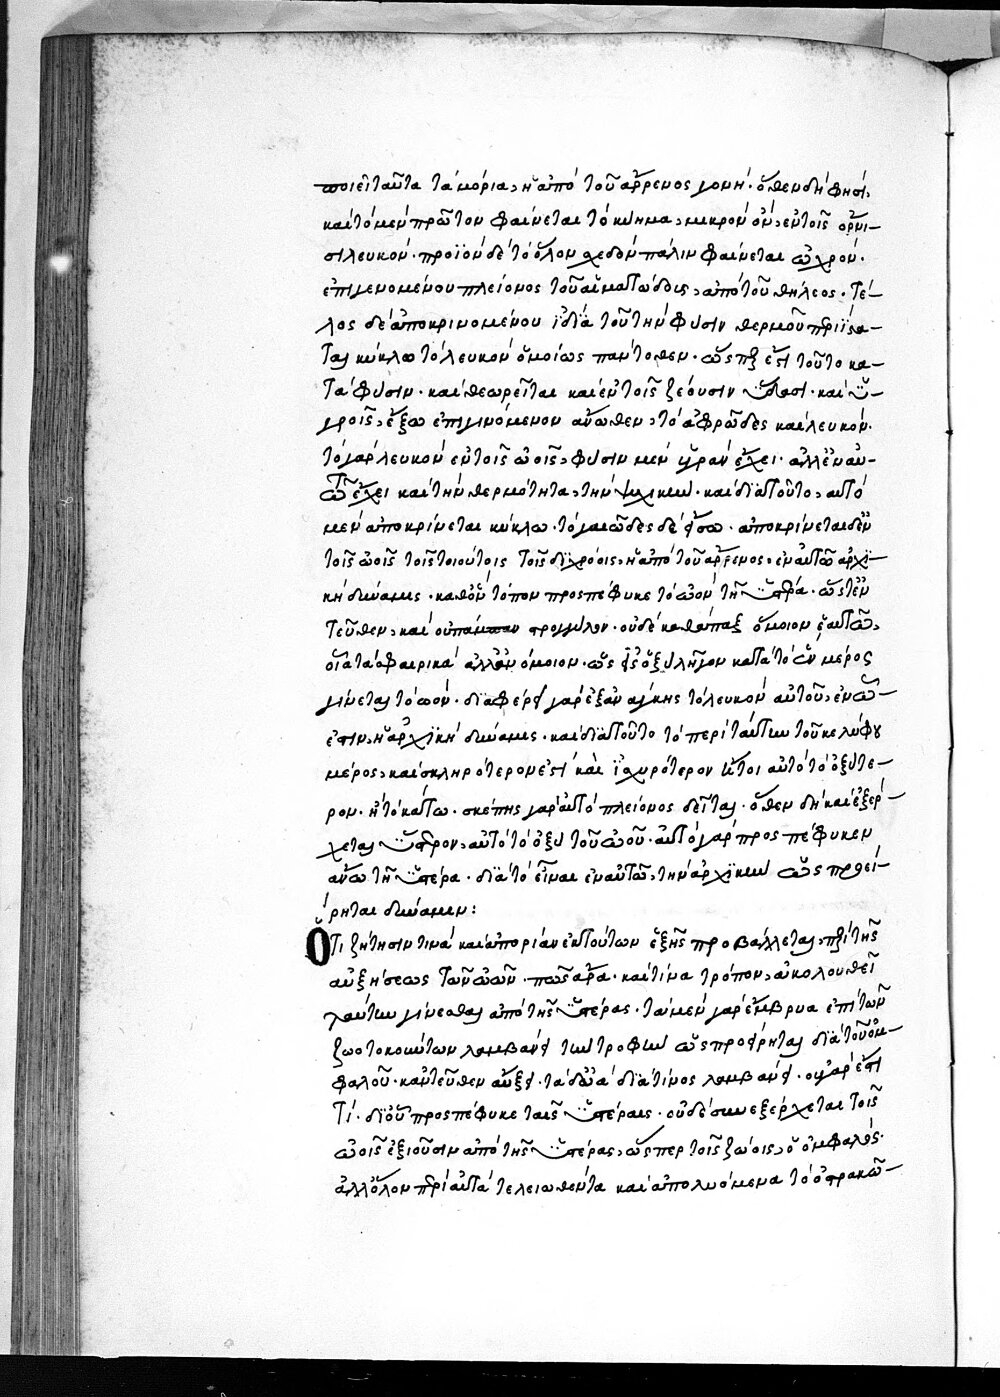 ποιεῖ ταῦτα τὰ μόρια, ἡ ἀπὸ τοῦ ἄρρενος γονή. ὅθεν δή φησι,
καὶ τὸ μὲν πρῶτον φαίνεται τὸ κύημα, μικρὸν ὂν, ἐν τοῖς ὄρνι-
σι λευκόν. προϊὸν δὲ τὸ ὅλον σχεδὸν πάλιν φαίνεται ὠχρόν.
ἐπιγενομένου πλείονος τοῦ αἱματώδους, ἀπὸ τοῦ θήλεος. τέ-
λος δὲ ἀποκρινομένου ἰδία τοῦ τὴν φύσιν θερμοῦ περιΐστα-
ται κύκλω τὸ λευκὸν ὁμοίως πάντοθεν. ὥσπερ ἐστὶ τοῦτο κα-
τὰ φύσιν. καὶ θεωρεῖται καὶ ἐν τοῖς ζέουσιν ὕδασι. καὶ ὑ-
γροῖς, ἔξω ἐπιγινόμενον ἄνωθεν, τὸ ἀφρῶδες καὶ λευκόν.
τὸ γὰρ λευκὸν ἐν τοῖς ὠοῖς, φύσιν μὲν ὑγρὰν ἔχει. ἀλλ' ἐν αὐ-
τῶ ἔχει καὶ τὴν θερμότητα, τὴν ψυχικὴν. καὶ διὰ τοῦτο, αὐτὸ
μὲν ἀποκρίνεται κύκλω. τὸ γαιῶδες δὲ ἔσω. ἀποκρίνεται δὲ ἐν
τοῖς ὠοῖς τοῖς τοιούτοις τοῖς διχρόοις, ἡ ἀπὸ τοῦ ἄρρενος, ἐν αὐτῶ ἀρχι-
κὴ δύναμις. καθ' ὃν τόπον προσπέφυκε τὸ ὠὸν τῆ ὑστέρα. ὥστε ἐν
τεῦθεν, καὶ οὐ πάμπαν στρογγύλον. οὐδὲ καθάπαξ ὅμοιον ἑαυτῶ,
οἷα τὰ σφαιρικά ἀλλ' ἀνόμοιον. ὡς ὀξύληγον κατὰ τὸ ἓν μέρος
γίνεται τὸ ὠόν. διαφέρει γὰρ ἐξ ἀνάγκης τὸ λευκὸν αὐτοῦ, ἐν ᾧ
ἐστιν, ἡ ἀρχικὴ δύναμις. καὶ διὰ τοῦτο τὸ περὶ ταύτην τοῦ κελύφου
μέρος, καὶ σκληρότερόν ἐστι καὶ ἰσχυρότερον ἤτοι αὐτὸ τὸ ὀξύτε-
ρον. ἢ τὸ κάτω. σκέπης γὰρ αὐτὸ πλείονος δεῖται. ὅθεν δὴ καὶ ἐξέρ-
χεται ὕστερον, αὐτὸ τὸ ὀξὺ τοῦ ὠοῦ. αὐτὸ γὰρ προσπέφυκεν
ἄνω τῆ ὑστέρα. διὰ τὸ εἶναι ἐν αὐτῶ, τὴν ἀρχικὴν ὡς προεί-
ρηται δύναμιν:
Ὅτι ζήτησίν τινα καὶ ἀπορίαν ἐκ τούτων ἑξῆς προβάλλεται, περὶ τῆς
αὐξήσεως τῶν ὠῶν. πῶς ἄρα. καὶ τίνα τρόπον, ἀκολουθεῖ
ταύτην γίνεσθαι ἀπὸ τῆς ὑστέρας. τὰ μὲν γὰρ ἔμβρυα ἐπὶ τῶν
ζωοτοκούντων λαμβάνει τὴν τροφὴν ὡς προείρηται διὰ τοῦ ὀμ-
φαλοῦ. κἀντεῦθεν αὔξει. τὰ δὲ ὠὰ διὰ τίνος λαμβάνει. οὐ γάρ ἐστί
τι. δι' οὗ προσπέφυκε ταῖς ὑστέραις. οὐδὲ συνεξέρχεται τοῖς
ὠοῖς ἐξιοῦσιν ἀπὸ τῆς ὑστέρας, ὥσπερ τοῖς ζώοις, ὁ ὀμφαλός.
ἀλλ' ὅλον περὶ αὐτὰ τελειωθέντα καὶ ἀπολυόμενα τὸ ὀστρακῶ-